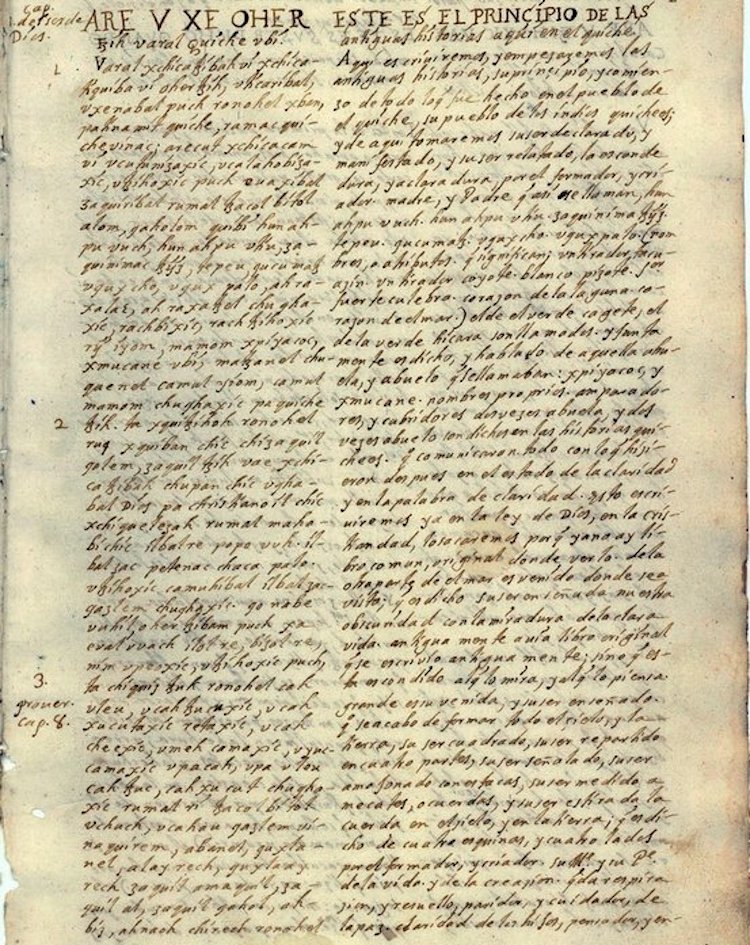 Cap.
1. del ser de
Dios.
ARE V XE OHER
tzih varal Quiche vbi.
1
Varal xchicatzibah vi xchica-
tiquiba vi oher tzih, vticaribal,
vxenabal puch ronohel xban,
pa tinamit quiche, ramac qui-
che vinac; arecut xchicacam
vi vcutunizaxic, vcalahobiza-
xic, vtzihoxic puch euaxibal
zaquiribal rumal tzacol bitol
alom, qaholom quibi hun ah-
pu vuch, hun ahpu vtiu, za-
quinimac tzijz, tepeu, qucumatz
vqux cho, vqux palo, ah ra-
xalaq, ah raxatzel chugha-
xic, rachbixic, rachtzihoxic
rij iyom, mamom xpiyacoc,
xmucane vbi, matzanel chu-
quenel camul yiom, camul
mamom chughaxic pa quiche
2
tzih. ta xquitzihoh ronohel
ruq xquiban chic chi zaquil
qolem, zaquil tzih vae xchi-
catzibah chupan chic vgha-
bal Dios pa christianoil chic
xchiquelezah rumal maha-
bi chic ilbal re popo vuh. il-
bal zac petenac chaca palo.
vtzihoxic camuhibal ilbal zac
qazlem chughaxic. qo nabe
vuhil, oher tzibam puch xa
eval vvach ilol re, bizol re,
nim vpeoxic, vtzihoxic puch,
3.
prouer.
cap. 8.
ta chiquis tzuk ronohel cah
vleu, vcah tzucuxic, vcah
xucutaxic retaxic, vcah
cheexic, vmeh camaxic, vyuc
camaxic vpa cah, vpa vleu
cah tzuc, cah xucut chugha-
xic rumal ri tzacol bitol
vchuch, vcahau qazlem vi-
naquirem, abanel, quxla-
nel, alay rech, quxlaay
rech zaquil amaquil, za-
quil al, zaquil qahol, ah-
biz, ahnaoh chirech ronohel
ESTE ES EL PRINCIPIO DE LAS
antiguas historias aqui en el quiche.
Aqui escriuiremos, y empezaremos las
antiguas historias, su principio, y comien-
zo de todo lo q̃ fue hecho en el pueblo de
el quiche, su pueblo de los indios quichees;
y de aqui tomaremos su ser declarado, y
manifestado, y su ser relatado, la esconde
dura, y aclaradura por el formador, y cri-
ador. madre, y Padre q̃ asi se llaman, hun
ahpu vuch. hun ahpu vtiu. zaquinima tzijz.
tepeu. qucumatz. vqux cho. vqux palo. (nom
bres, o atributos. q̃ significan; vn tirador tacu-
azin vn tirador coyote. blanco pizote. Sor
fuerte culebra. corazon de la laguna. co-
razon de el mar.) el de el verde cagete, el
de la verde hicara son llamados. y junta
mente es dicho, y hablado. de aquella abu-
ela, y abuelo q̃ se llamaban: xpiyacoc, y
xmucane. nombres proprios. amparado-
res, y cubridores dos vezes abuela, y dos
vezes abuelo son dichos en las historias qui-
chees. q̃ comunicaron todo con lo q̃ hisi-
eron despues en el estado de la claridad
y en la palabra de claridad. Esto escri-
uiremos ya en la ley de Dios, en la cris-
tiandad, lo sacaremos porq̃ ya no ay li-
bro comun, original donde verlo. de la
otra parte de el mar es venido donde se a
visto; q̃ es dicho su ser enseñada nuestra
obscuridad con la miradura de la clara
vida. antigua mente auia libro original
q̃ se escriuio antigua mente; sino q̃ es-
ta escondido al q̃ lo mira, y al q̃ lo piensa.
grande es su venida, y su ser enseñado.
q̃ se acabo de formar todo el cielo, y la
tierra, su ser cuadrado, su ser repartido
en cuatro partes, su ser señalado, su ser
amojonado con estacas, su ser medido a
mecates, o cuerdas, y su ser estirada la
cuerda en el sielo, y en la tierra; q̃ es di-
cho de cuatro esquinas, y cuatro lados
por el formador, y criador. su Me. y su Pe.
de la vida. y de la creasion. q̃ da respira-
sion, y resuello, paridora, y cuidador, de
la paz. claridad de los hijos, pensador, y en-